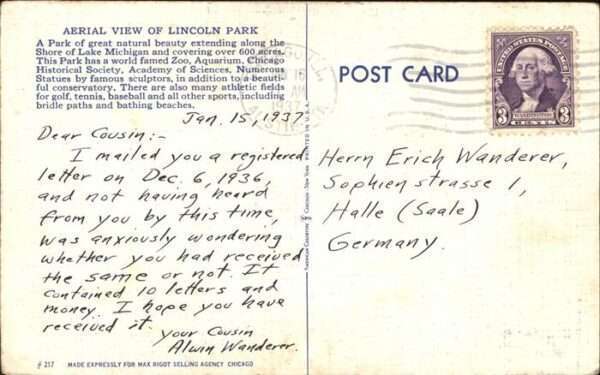 AERIAL VIEW OF LINCOLN PARK
A Park of great natural beauty extending along the
Shore of Lake Michigan and covering over 600 acres.
This Park has a world famed Zoo, Aquarium, Chicago
Historical Society, Academy of Sciences, Numerous
Statues by famous sculptors, in addition to a beauti-
ful conservatory. There are also many athletic fields
for golf, tennis, baseball and all other sports, including
bridle paths and bathing beaches.
Jan. 15, 1937
Dear Cousin:-
I mailed you a registered
letter on Dec. 6, 1936,
and not having heard
from you by this time,
was anxiously wondering
whether you had received
the same or not. It
contained 10 letters and
money. I hope you have
received it.
Your Cousin
Alwin Wanderer.
# 217 MADE EXPRESSLY FOR MAX RIGOT SELLING AGENCY CHICAGO
POST CARD
1937
UNITED STATES POSTAGE
WASHINGTON
3 CENTS 3
Herrn Erich Wanderer,
Sophienstrasse 1,
Halle (Saale)
Germany.